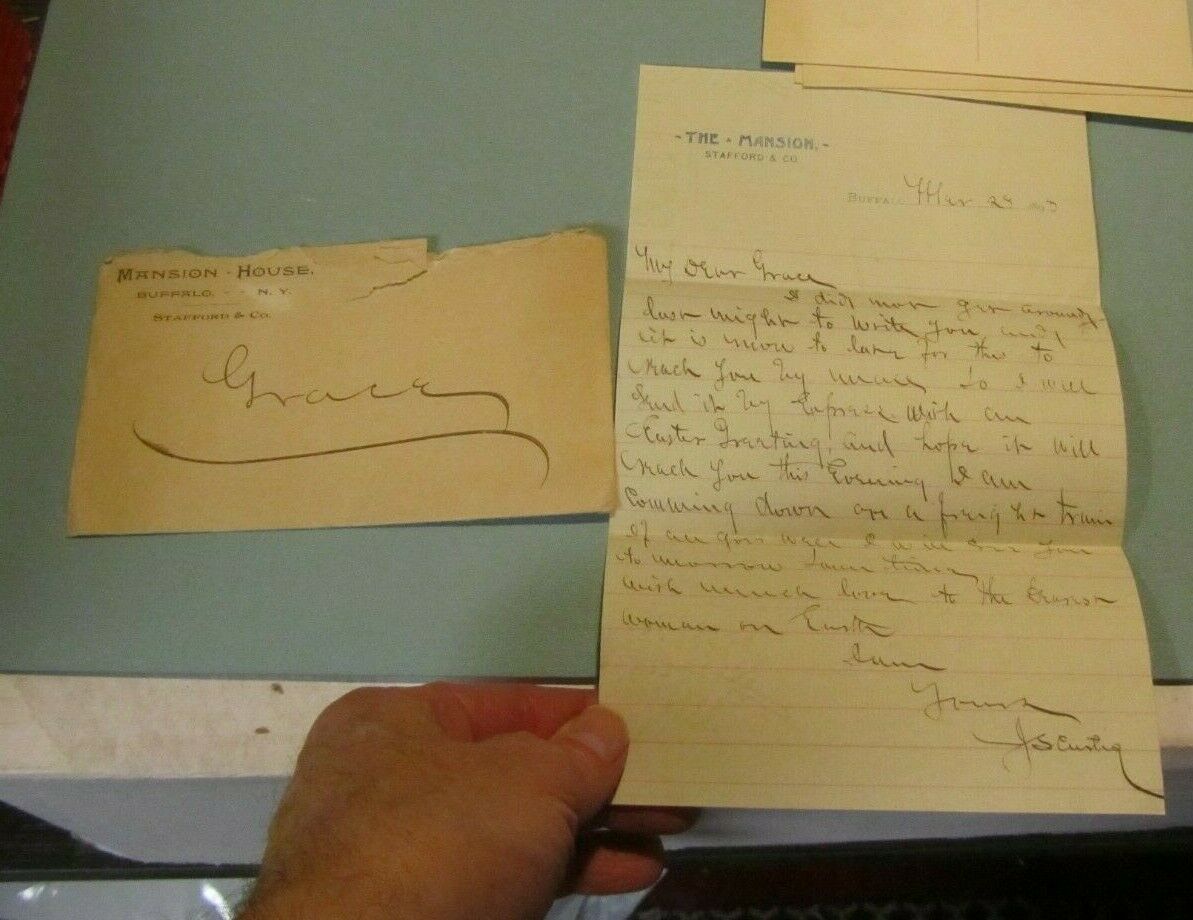 MANSION - HOUSE.
BUFFALO, - - N. Y.
STAFFORD & CO.
Grace
- THE - MANSION. -
STAFFORD & CO.
BUFFALO, Mar 28
My Dear Grace
I did not get around
last night to write you and
it is now to late for this to
reach you by mail so I will
send it by Express with an
Easter Greeting, and hope it will
reach you this Evening I am
Comming down on a freight train
of an I will see you
to morrow
with much love to the Dearest
woman on Earth
I am
Yours
J S